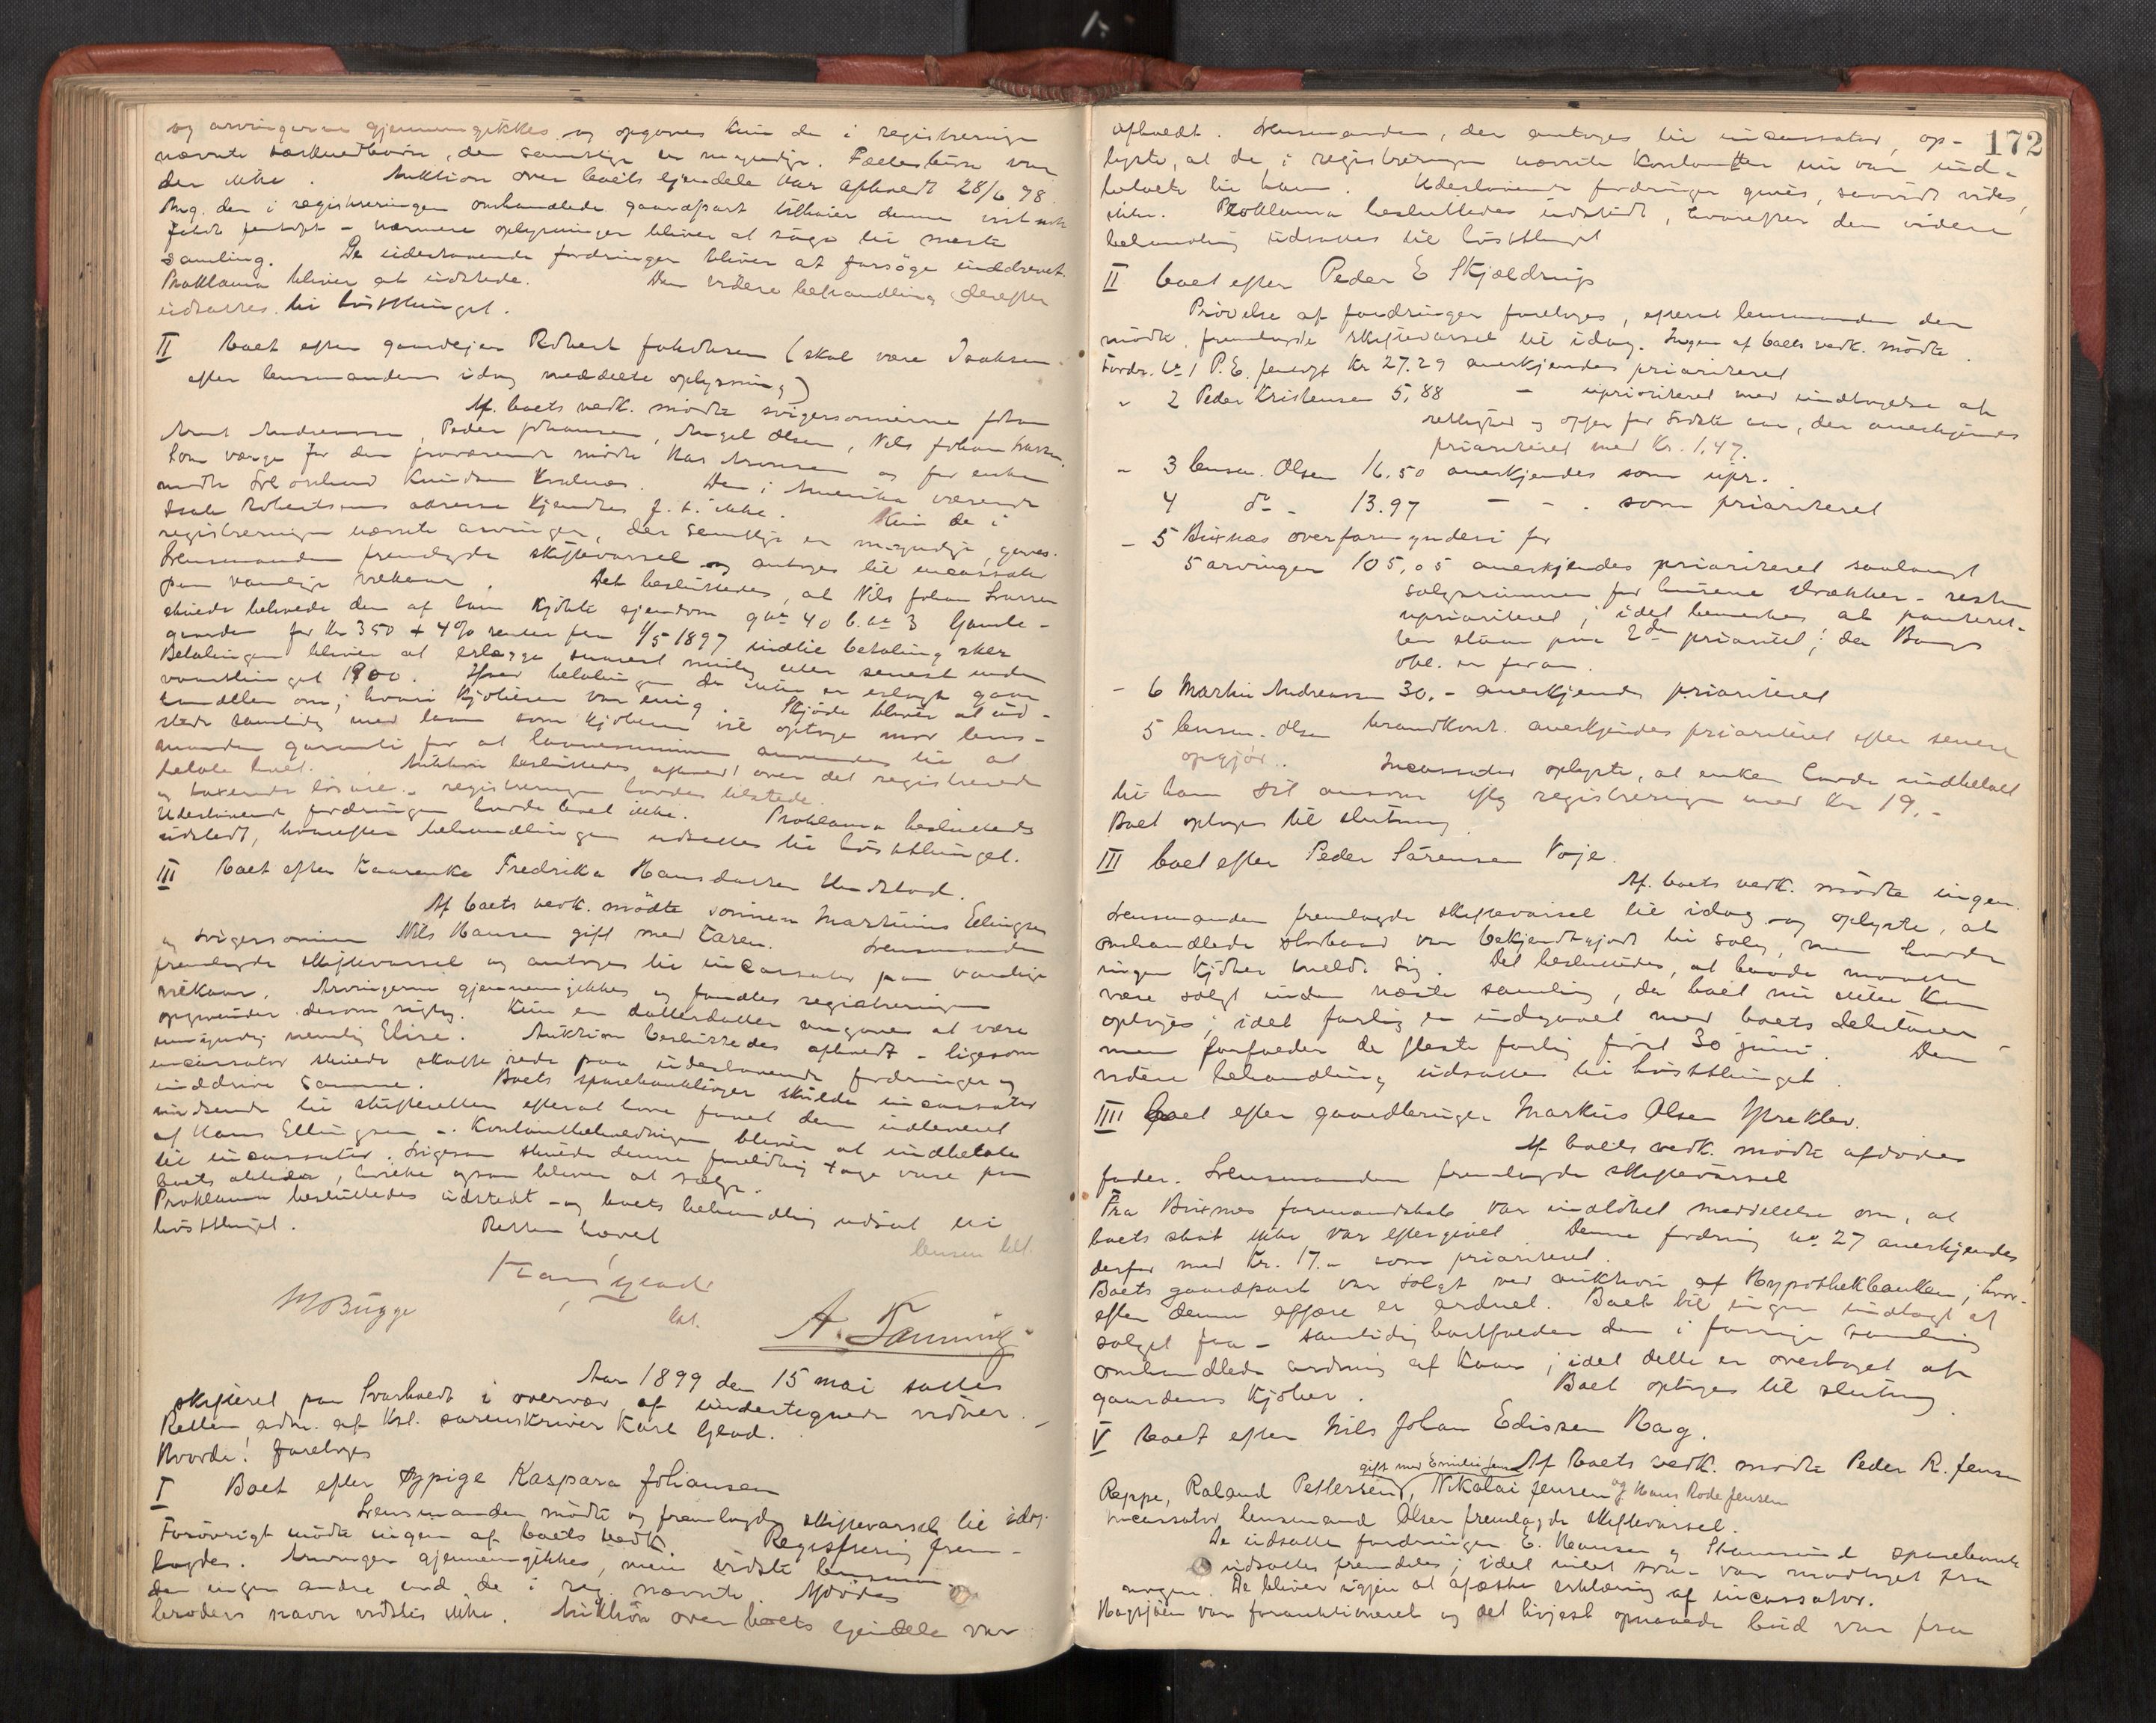 og arvingerne gjennemgikkes og opgaves kun de i registreringen
nævnte, der samtlige er myndige. Fælesbörn var
der ikke. Auktion over boets ejendele var afholdt 28/6 98.
Ang. den i registreringen omhandlede gaardpart
nærmere oplysninger bliver at söge til næste
samling. De udestaaende fordringer bliver at forsöge inddrevet.
Proklama bliver at udstede. Den videre behandling derefter
udsattes til höstthinget.
II Boet efter gaardejer Robert Jakobsen (skal være Isaksen
efter lensmandens idag meddelte oplysning)
Af boets vedk. mödte svigersönnerne Johan
Arnt Andreassen, Peder Johansen, Angel Olsen, Nils Johan Larsen.
Som værge for den fraværende mödte Aronsen og for enken
mödte Knudsen. Den i Amerika værende
Isak Robertsens adresse kjendtes f. t. ikke. Kun de i
registreringen nævnte arvinger, der samtlige er myndige, gaves.
Lensmanden fremlagde skiftevarsel og antoges til incassator
paa vanlige vilkaar. Det besluttedes, at Nils Johan Larsen
skulde beholde den af ham kjöbte ejendom gno 40 b.no 3
gaarden for Kr 350 + 4% renter fra 1/5 1897 indtil betaling sker
Betalingen bliver at erlægge snarest mulig eller senest inden
vaarthinget 1900. Hvis betalingen da ikke er erlagt gaar
handelen om; hvori kjöberen var enig. Skjöde bliver at ud-
stede samtidig med laan som kjöberen vil optage mod lens-
mandens garanti for at laanesummen anvendes til at
betale boet. Auktion besluttedes afholdt over det registrerede
og taxerede lösöre. registreringen havdes tilstede.
Udestaaende fordringer havde boet ikke. Proklama besluttedes
udstedt, hvorefter behandlingen udsattes til höstthinget.
III Boet efter Kaarenka Fredrika Hansdatter Undstad.
Af boets vedk. mödte sönnen Martinus Ellingsen
og svigersönnen Nils Hansen gift med Karen. Lensmanden
fremlagde skiftevarsel og antoges til incassator paa vanlige
vilkaar. Arvingerne gjennemgikkes og fandtes registreringens
opgivender derom rigtig. Kun en datterdatter angaves at være
umyndig nemlig Elise. Auktion besluttedes afholdt - ligesom
incassator skulde skaffe rede paa udestaaende fordringer og
inddrive samme. Boets sparebankböger skulde incassator
indsende til skifteretten efterat have faaet dem udleveret
af Hans Ellingsen. Kontantbeholdningen bliver at indbetale
til incassator. Ligesom skulde denne foreldbig tage vare paa
boets aktier, hvilke ogsaa bliver at sælge.
Proklama besluttedes udstedt - og boets behandling udsat til
höstthinget. Retten hævet
Karl Glad
kst.
M Bugge
A. Tanning
Aar 1899 den 15 mai sattes
skifteret paa Svarholdt i overvær af undertegnede vidner.
Retten adm. af kst. sorenskriver Karl Glad.
Hvorda! foretoges
I Boet efter pige Kaspara Johansen
Lensmanden mödte og fremlagde skiftevarsel til idag.
Forövrigt mödte ingen af boets vedk. Registrering frem-
lagdes. Arvinger gjennemgikkes, men vidste lensman-
den ingen andre end de i reg. nævnte. Afdödes
broders navn vidstes ikke. Auktion over boets ejendele var
172
afholdt. Lensmanden, der antoges til incassator, op-
lyste, at de i registreringen nævnte kontanter nu var ind-
betalte til ham. Udestaaende fordringer gaves, saavidt vides,
ikke. Proklama besluttedes udstedt, hvorefter den videre
behandling udsattes til höstthinget
II boet efter Peder E Skjeldrup
Prövelse af fordringer foretoges, efterat lensmanden der
mödte, fremlagde skiftevarsel til idag. Ingen af boets vedk. mödte.
Fordr. No 1 P.E. Kr 27.29 anerkjendes prioriteret
" 2 Peder Kristensen 5,88 - uprioriteret med undtagelse af
rettighed og offer for sidste aar, der anerkjendes
prioriteret med Kr. 1.47.
- 3 lensm. Olsen 16.50 anerkjendes som upr.
4 do - 13.97 - - . som prioriteret
- 5 Buxnæs overformynderi for
5 arvinger 105,05 anerkjendes prioriteret saalangt
salgssummen for husene strækker - resten
uprioriteret; idet bemærkes at panteret-
ten staar paa 2den prioritet; da Bangs
obl. er foran.
- 6 Martin Andreassen 30.- anerkjendes prioriteret
5 lensm. Olsen brandkont. anerkjendes prioriteret efter senere
opgjör. Incassator oplyste, at enken havde indbetalt
til ham sit ansvar iflg registreringen med Kr 19.-
Boet optages til slutning
III boet efter Peder Sörensen Voje.
Af boets vedk. mödte ingen.
Lensmanden fremlagde skiftevarsel til idag og oplyste, at
omhandlede storbaad var bekjendtgjort til salg, men havde
ingen kjöber meldt sig. Det besluttedes, at baade maatte
være solgt inden næste samling, da boet nu ikke kan
optages; idet forlig er indgaaet med boets debitorer -
men forfalder de fleste forlig först 30 juni. Den
videre behandling udsattes til höstthinget.
IIII Boet efter gaardbruger Markus Olsen
Af boets vedk. mödte afdödes
fader. Lensmanden fremlagde skiftevarsel
Fra Buxnæs formandskab var indlöbet meddelelse om, at
boets skat ikke var eftergivet. Denne fordring No 27 anerkjendes
derfor med Kr. 17.- som prioriteret.
Boets gaardpart var solgt ved auktion af Hypothekbanken; hvor-
efter denne affære er ordnet. Boet vil ingen indtægt af
salget faa - samtidig bortfalder den i forrige samling
omhandlede ordning af kaar; idet dette er overtaget af
gaardens kjöber. Boet optages til slutning
V Boet efter Nils Johan Edissen Hag.
gift med Emilie Jens. Af boets vedk. mödte Peder R. Jensen
Reppe, Roland Pettersen, Nikolai Jensen og Hans Rode Jensen
Incassator lensmand Olsen fremlagde skiftevarsel.
De udsatte fordringer E. Hansen og Stamsund sparebank
udsattes fremdeles; idet intet svar var modtaget fra
nogen. De bliver igjen at afæske erklæring af incassator.
Hagsjöen var forauktioneret og det höjest opnaaede bud var fra